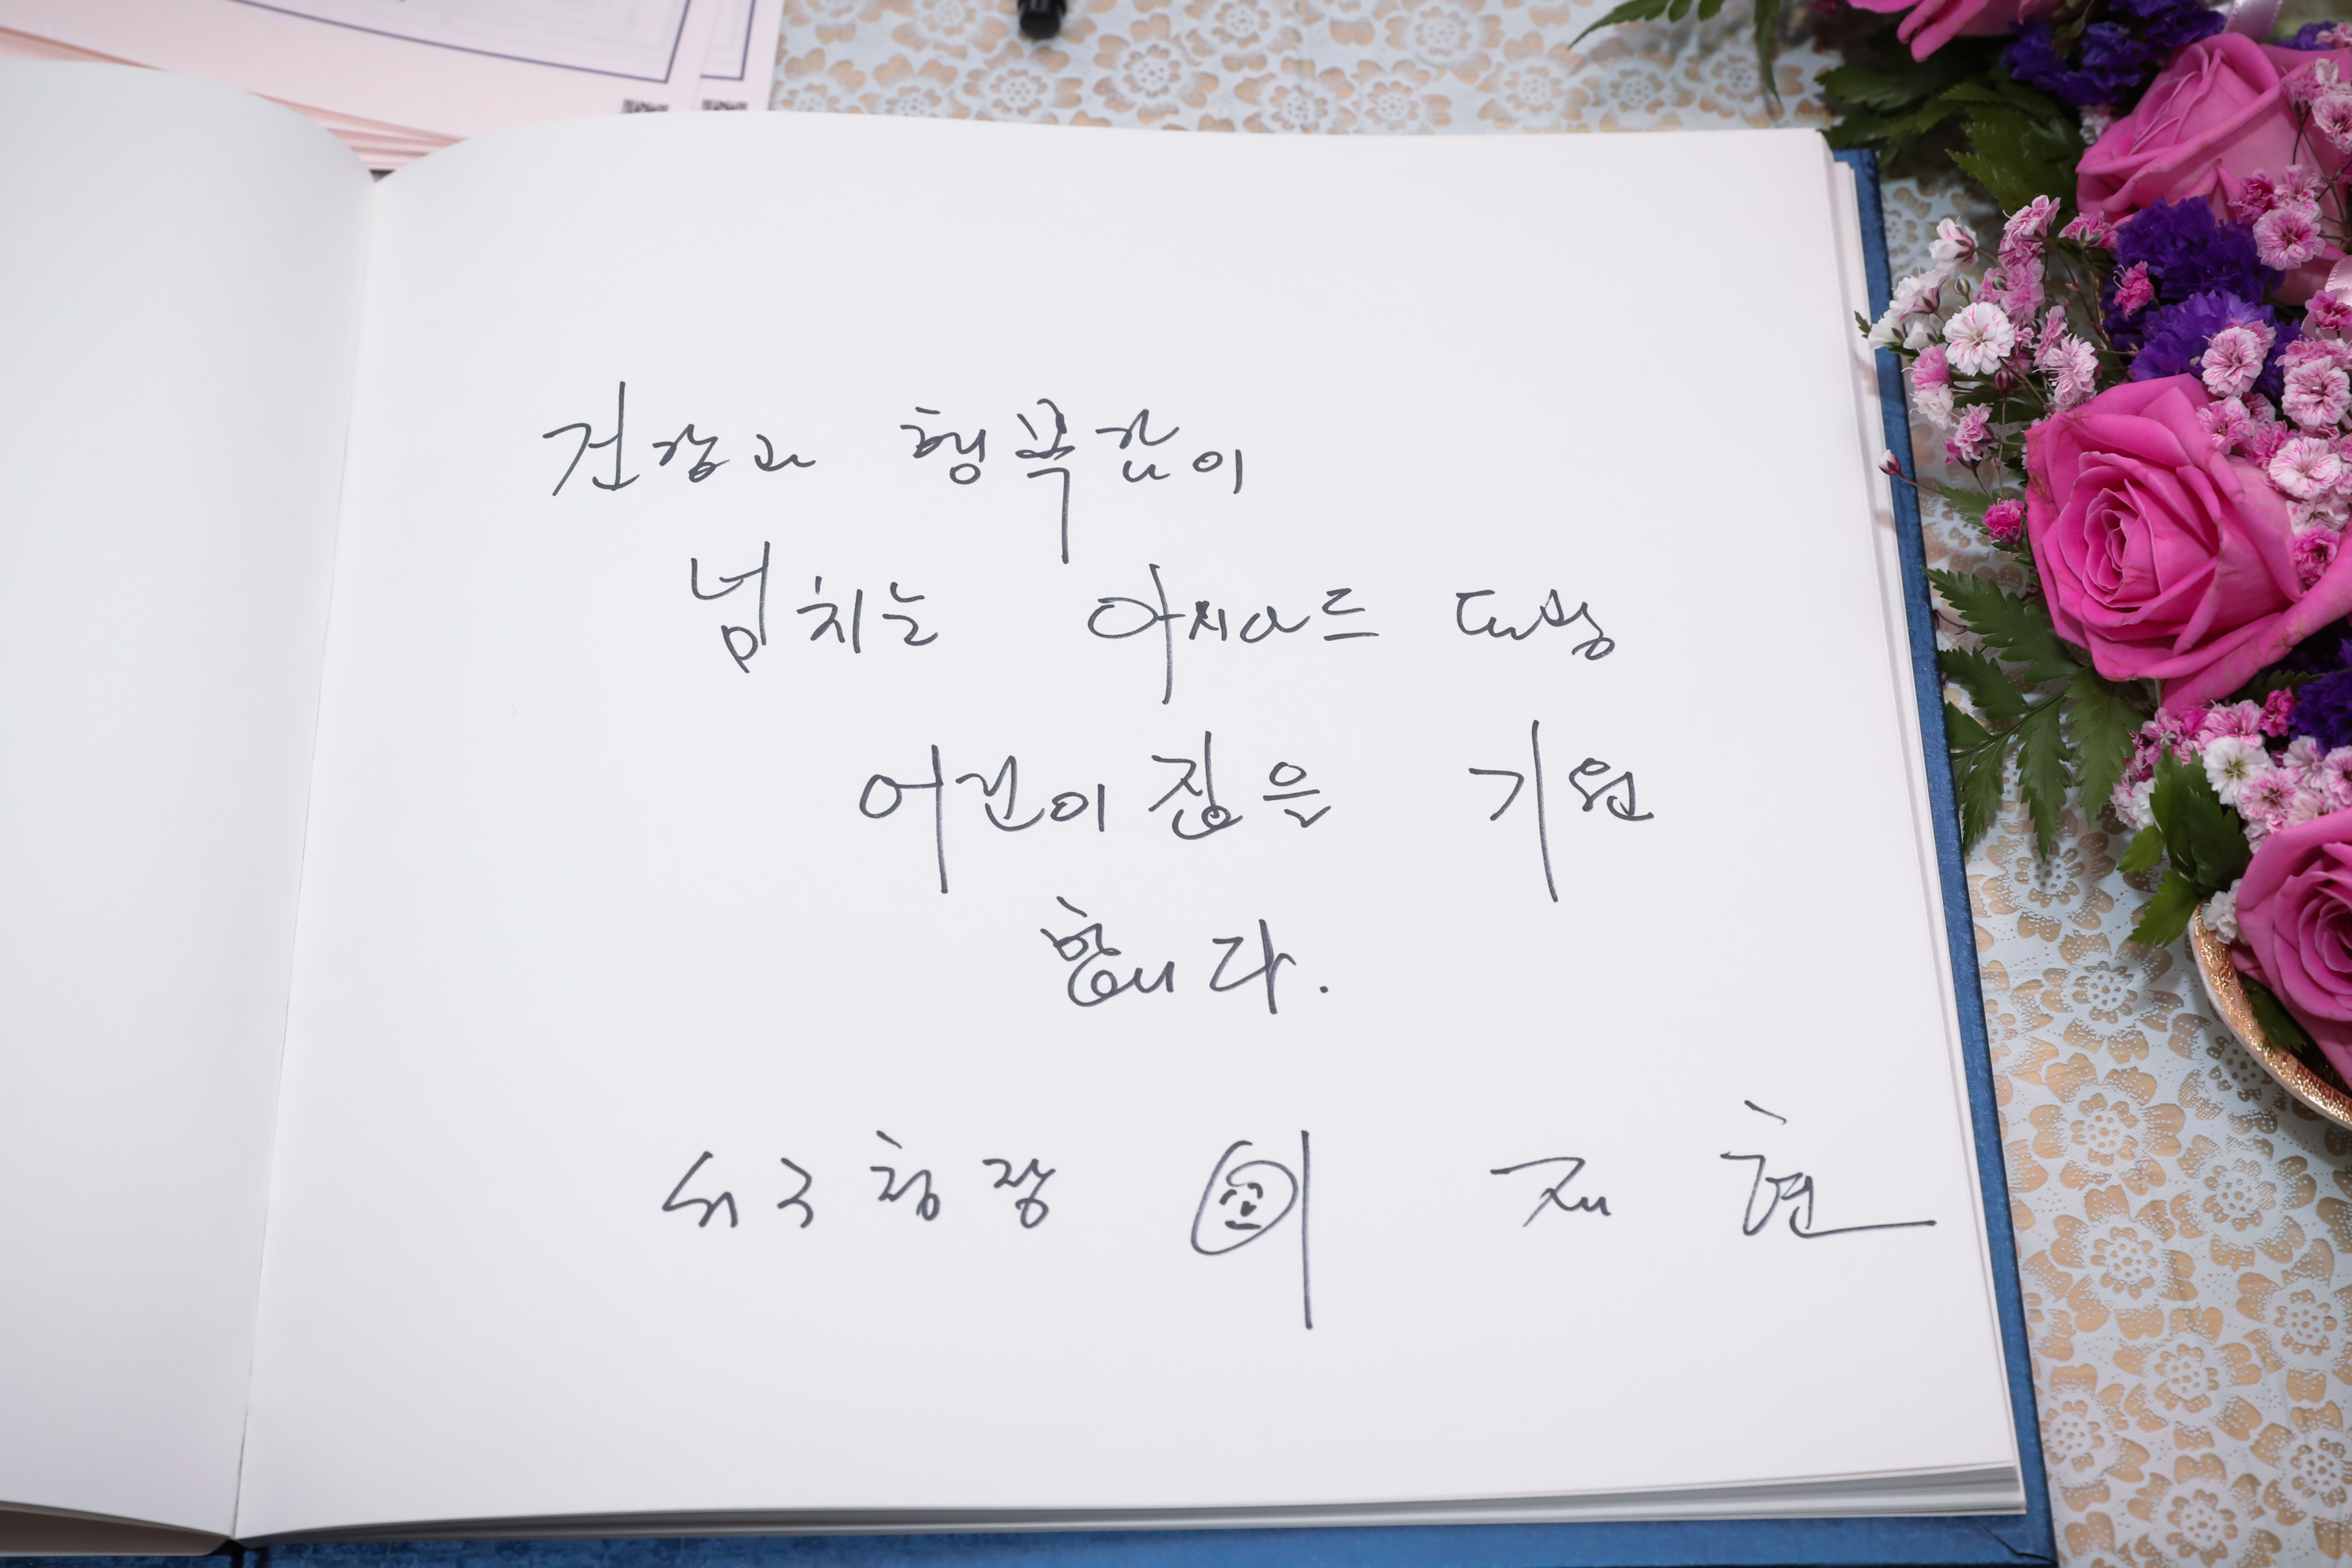 건강과 행복감이
넘치는 아시아드 대성
어린이집을 기원
합니다.
서구청장 이 재 현